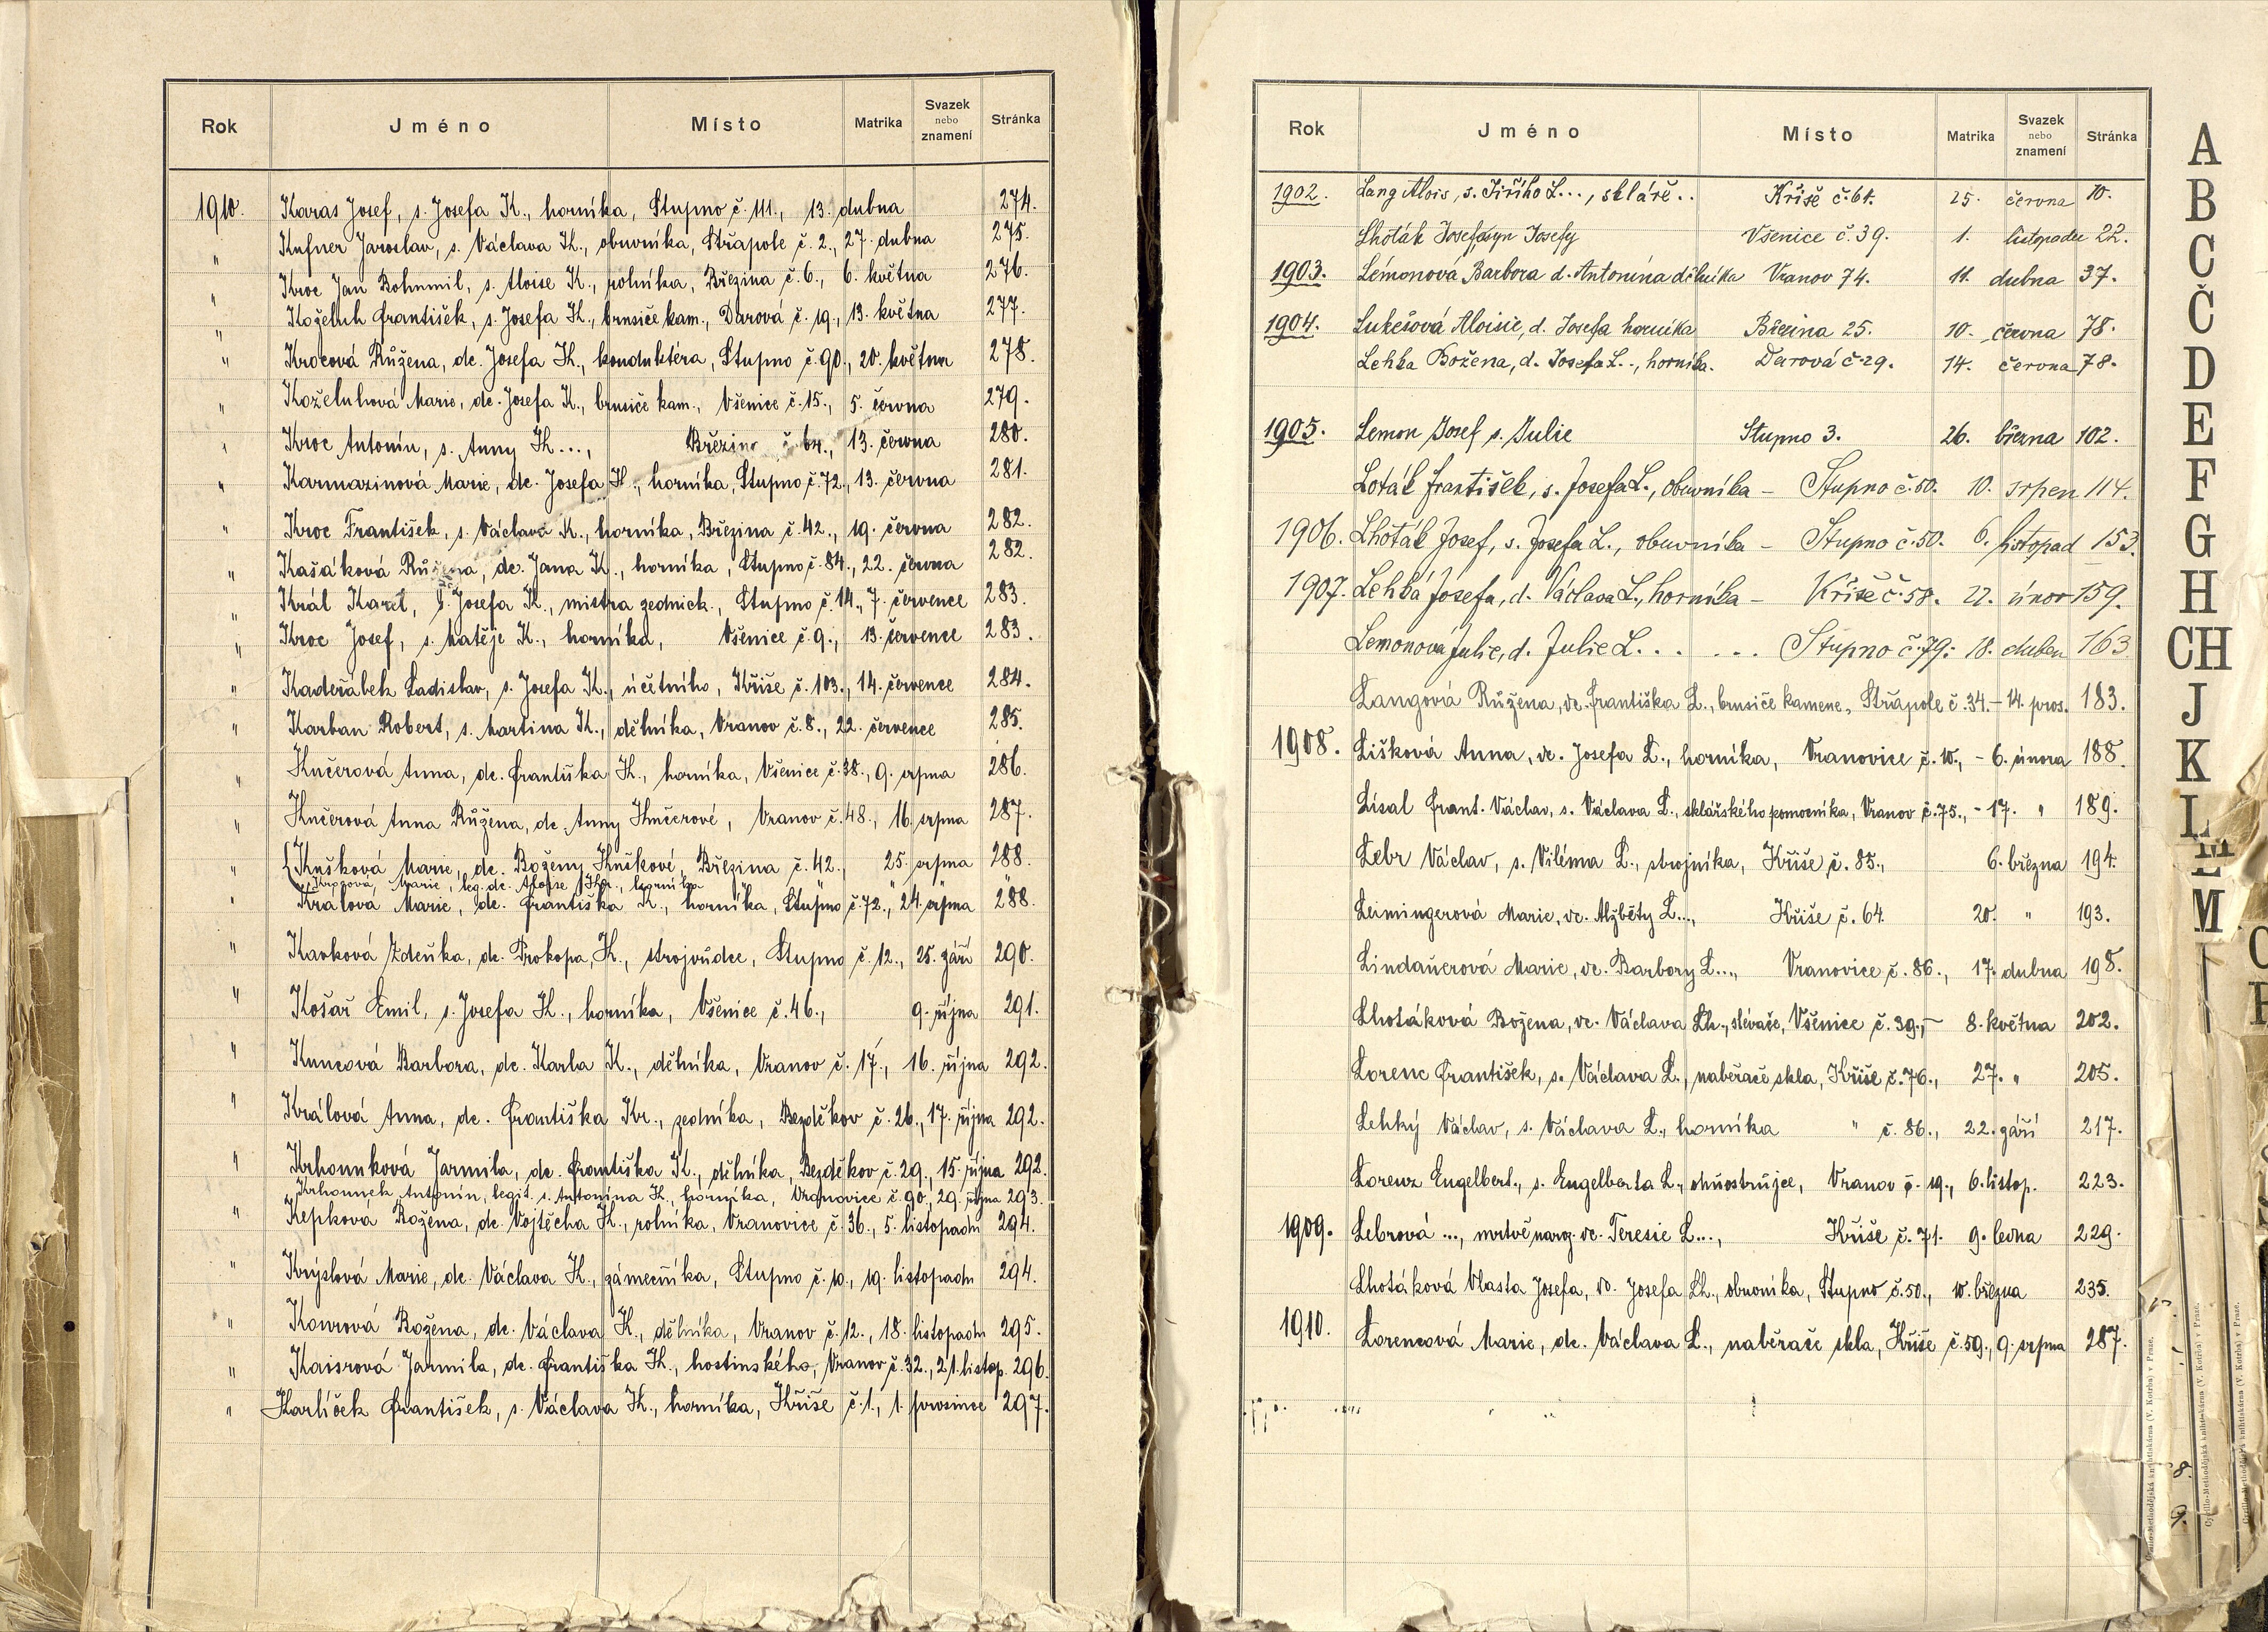 Rok Jméno Místo Matrika Svazek nebo znamení Stránka
1910. Karas Josef, s. Josefa K., horníka, Stupno č. 111., 13. dubna 274.
" Kufner Jaroslav, s. Václava K., obuvníka, Střapole č. 2., 27. dubna 275.
" Kroc Jan Bohumil, s. Aloise K., rolníka, Březina č. 6., 6. května 276.
" Koželuh František, s. Josefa K., brusiče kam., Darová č. 19., 13. května 277.
" Krocová Růžena, dc. Josefa K., konduktéra, Stupno č. 90., 20. května 278.
" Koželuhová Marie, dc. Josefa K., brusiče kam., Všenice č. 15., 5. června 279.
" Kroc Antonín, s. Anny K..., Březina č. 64., 13. června 280.
" Karmazinová Marie, dc. Josefa K., horníka, Stupno č. 72., 13. června 281.
" Kroc František, s. Václava K., horníka, Březina č. 42., 19. června 282.
" Kašáková Růžena, dc. Jana K., horníka, Stupno č. 84., 22. června 282.
" Král Karel, s. Josefa K., mistra zednick., Stupno č. 14., 7. července 283.
" Kroc Josef, s. Matěje K., horníka, Všenice č. 9., 13. července 283.
" Kadeřábek Ladislav, s. Josefa K., účetního, Kříše č. 103., 14. července 284.
" Karban Robert, s. Martina K., dělníka, Vranov č. 8., 22. července 285.
" Kučerová Anna, dc. Františka K., horníka, Všenice č. 38., 9. srpna 286.
" Kučerová Anna Růžena, dc. Anny Kučerové, Vranov č. 48., 16. srpna 287.
" Kušková Marie, dc. Boženy Kuškové, Březina č. 42., 25. srpna 288.
Marie, leg. dc. Aloise Kr., horníka "
" Králová Marie, dc. Františka K., horníka, Stupno č. 72., 24. srpna 288.
" Kavková Zdeňka, dc. Prokopa K., strojvůdce, Stupno č. 12., 25. září 290.
" Košař Emil, s. Josefa K., horníka, Všenice č. 46., 9. října 291.
" Kuncová Barbora, dc. Karla K., dělníka, Vranov č. 17., 16. října 292.
" Králová Anna, dc. Františka Kr., zedníka, Bezděkov č. 26., 17. října 292.
" Krhounková Jarmila, dc. Františka K., dělníka, Bezděkov č. 29., 15. října 292.
Krhounek Antonín, legit. s. Antonína K., horníka, Vranovice č. 90., 29. října 293.
" Kepková Božena, dc. Vojtěcha K., rolníka, Vranovice č. 36., 5. listopadu 294.
" Krýslová Marie, dc. Václava K., zámečníka, Stupno č. 10., 19. listopadu 294.
" Božena, dc. Václava K., dělníka, Vranov č. 12., 18. listopadu 295.
" Kaisrová Jarmila, dc. Františka K., hostinského, Vranov č. 32., 21. listop. 296.
" Karlíček František, s. Václava K., horníka, Kříše č. 1., 1. prosince 297.
Rok Jméno Místo Matrika Svazek nebo znamení Stránka
1902. Lang Alois, s. Jiřího L..., skláře.. Kříše č. 61. 25. června 10.
Lhoták Josef, syn Josefy Všenice č. 39. 1. listopadu 22.
1903. Lémonová Barbora d. Antonína dělníka Vranov 74. 11. dubna 37.
1904. Lukešová Aloisie, d. Josefa horníka Březina 25. 10. června 78.
Lehka Božena, d. Josefa L.., horníka. Darová č. 29. 14. června 78.
1905. Lemon Josef s. Julie Stupno 3. 26. března 102.
Loták František, s. Josefa L., obuvníka – Stupno č. 50. 10. srpen 114.
1906. Lhoták Josef, s. Josefa L., obuvníka – Stupno č. 50. 6. listopad 153.
1907. Lehká Josefa, d. Václava L., horníka – Kříše č. 58. 22. únor 159.
Lemonová Julie, d. Julie L... ... Stupno č. 79. 18. duben 163
Langová Růžena, dc. Františka L., brusiče kamene, Střapole č. 34. – 14. pros. 183.
1908. Lišková Anna, dc. Josefa L., horníka, Vranovice č. 10., – 6. února 188.
Lísal Frant. Václav, s. Václava L., sklářského pomocníka, Vranov č. 75., – 17. " 189.
Lebr Václav, s. Viléma L., strojníka, Kříše č. 85., 6. března 194.
Leimingerová Marie, dc. Alžběty L..., Kříše č. 64. 20. " 193.
Lindauerová Marie, dc. Barbory L..., Vranovice č. 86., 17. dubna 198.
Lhotáková Božena, dc. Václava Lh., slévače, Všenice č. 39., – 8. května 202.
Lorenc František, s. Václava L., naběrače skla, Kříše č. 76., 27. " 205.
Lehký Václav, s. Václava L., horníka " č. 86., 22. září 217.
Lorenz Engelbert, s. Engelberta L., ohňostrůjce, Vranov č. 19., 6. listop. 223.
1909. Lebrová ..., mrtvě naroz. dc. Teresie L..., Kříše č. 71. 9. ledna 229.
Lhotáková Vlasta Josefa, dc. Josefa Lh., obuvníka, Stupno č. 50., 10. března 235.
1910. Lorencová Marie, dc. Václava L., naběrače skla, Kříše č. 59., 9. srpna 287.
A
B
C
Č
D
E
F
G
H
CH
J
K
L
M
Cyrillo-Methodějská knihtiskárna (V. Kotrba) v Praze.
Cyrillo-Methodějská knihtiskárna (V. Kotrba) v Praze.
Cyrillo-Methodějská knihtiskárna (V. Kotrba) v Praze.
8.
9.